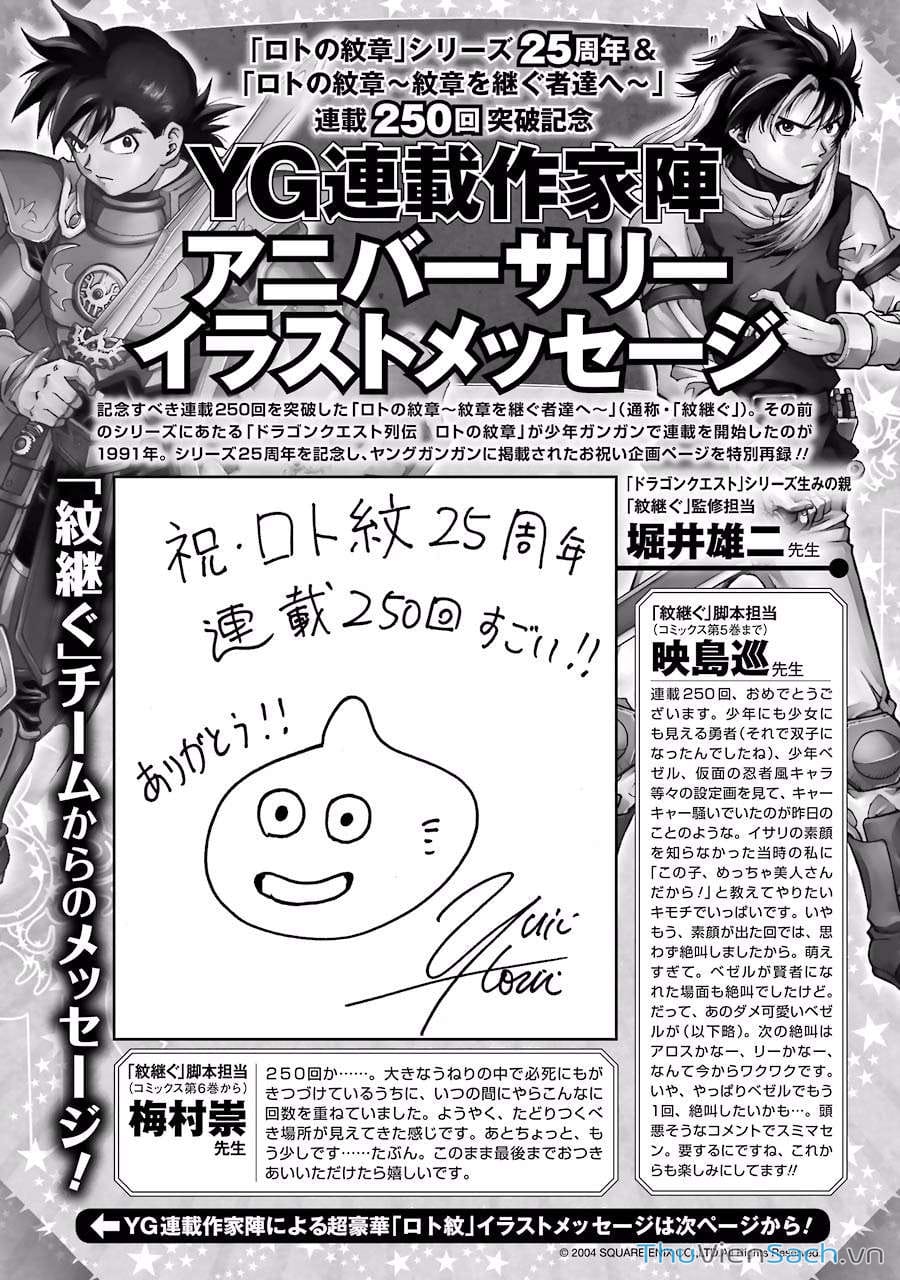 「ロトの紋章」シリーズ25周年&
「ロトの紋章～紋章を継ぐ者達へ～」
連載250回突破記念
YG連載作家陣
アニバーサリー
イラストメッセージ
記念すべき連載250回を突破した「ロトの紋章～紋章を継ぐ者達へ～」(通称・「紋継ぐ」)。その前
のシリーズにあたる「ドラゴンクエスト列伝　ロトの紋章」が少年ガンガンで連載を開始したのが
1991年。シリーズ25周年を記念し、ヤングガンガンに掲載されたお祝い企画ページを特別再録!!
「紋継ぐ」チームからのメッセージ!
祝・ロト紋25周年
連載250回すごい!!
ありがとう!!
Yuji Horii
「ドラゴンクエスト」シリーズ生みの親
「紋継ぐ」監修担当
堀井雄二先生
「紋継ぐ」脚本担当
(コミックス第5巻まで)
映島巡先生
連載250回、おめでとうご
ざいます。少年にも少女に
も見える勇者(それで双子に
なったんでしたね)、少年ベ
ゼル、仮面の忍者風キャラ
等々の設定画を見て、キャー
キャー騒いでいたのが昨日の
ことのような。イサリの素顔
を知らなかった当時の私に
「この子、めっちゃ美人さん
だから!」と教えてやりたい
キモチでいっぱいです。いや
もう、素顔が出た回では、思
わず絶叫しましたから。萌え
すぎて。ベゼルが賢者になれ
れた場面も絶叫でしたけど。
だって、あのダメ可愛いベゼ
ルが(以下略)。次の絶叫は
アロスかなー、リーかなー、
なんて今からワクワクです。
いや、やっぱりベゼルでもう
1回、絶叫したいかも…。頭
悪そうなコメントでスミマセ
ン。要するにですね、これか
らも楽しみにしてます!!
「紋継ぐ」脚本担当
(コミックス第6巻から)
梅村崇
先生
250回か……。大きなうねりの中で必死にもが
きつづけているうちに、いつの間にやらこんなに
回数を重ねていました。ようやく、たどりつくべ
き場所が見えてきた感じです。あとちょっと、も
う少しです……たぶん。このまま最後までおつき
あいいただけたら嬉しいです。
YG連載作家陣による超豪華「ロト紋」イラストメッセージは次ページから!
© 2004 SQUARE ENIX CO., LTD. All Rights Reserved.
ThuVienSach.vn